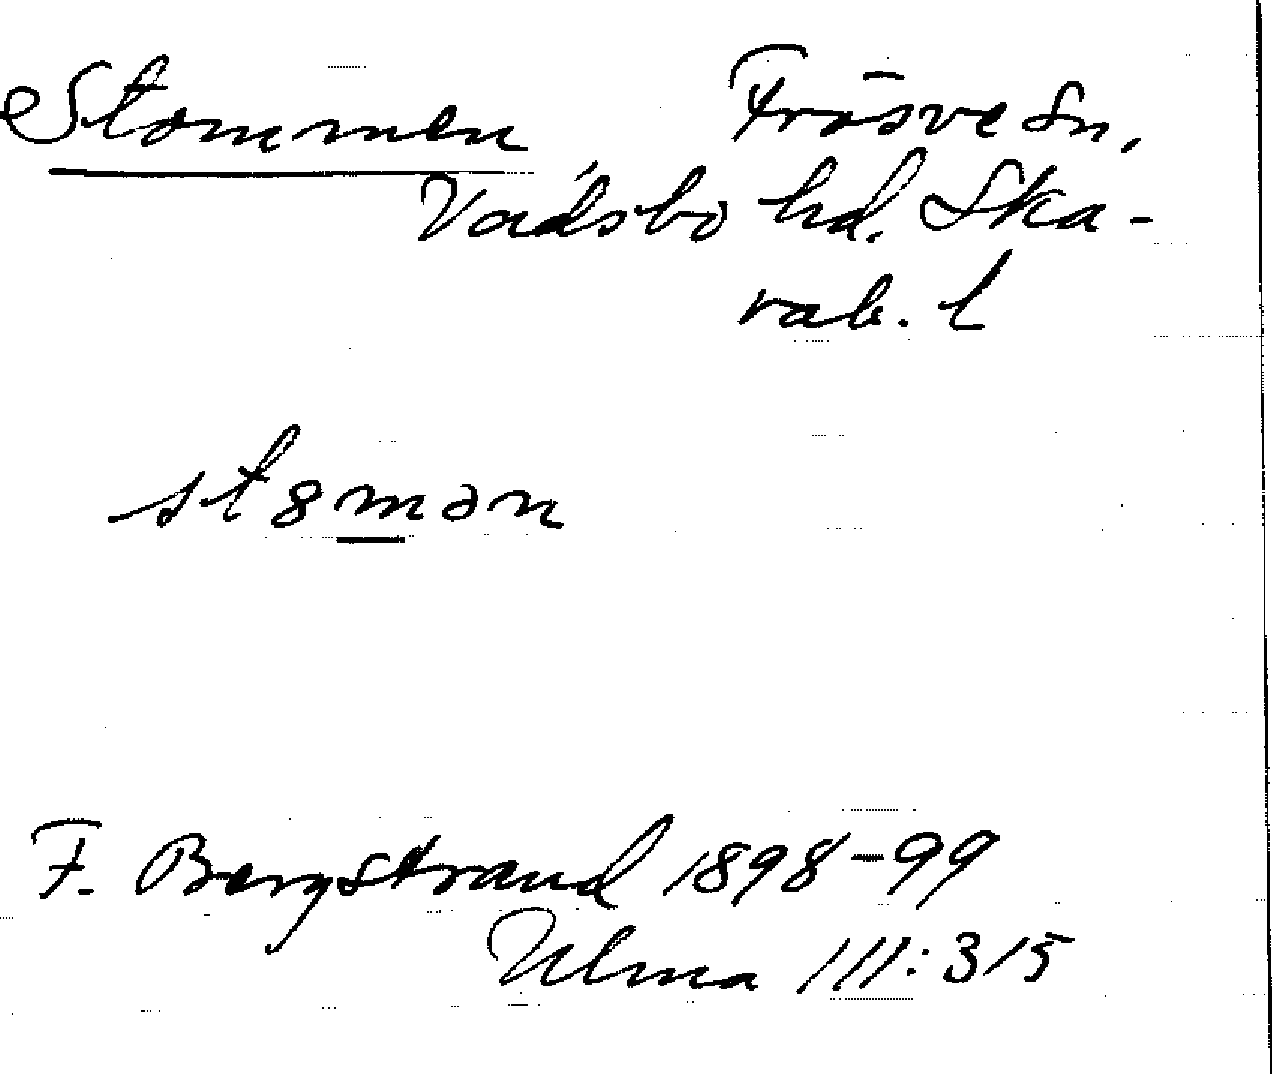 Stommen Frösve sn,
Vadsbo hd. Ska-
rab. l
st8mən
F. Bergstrand 1898-99
Ulma 111:315